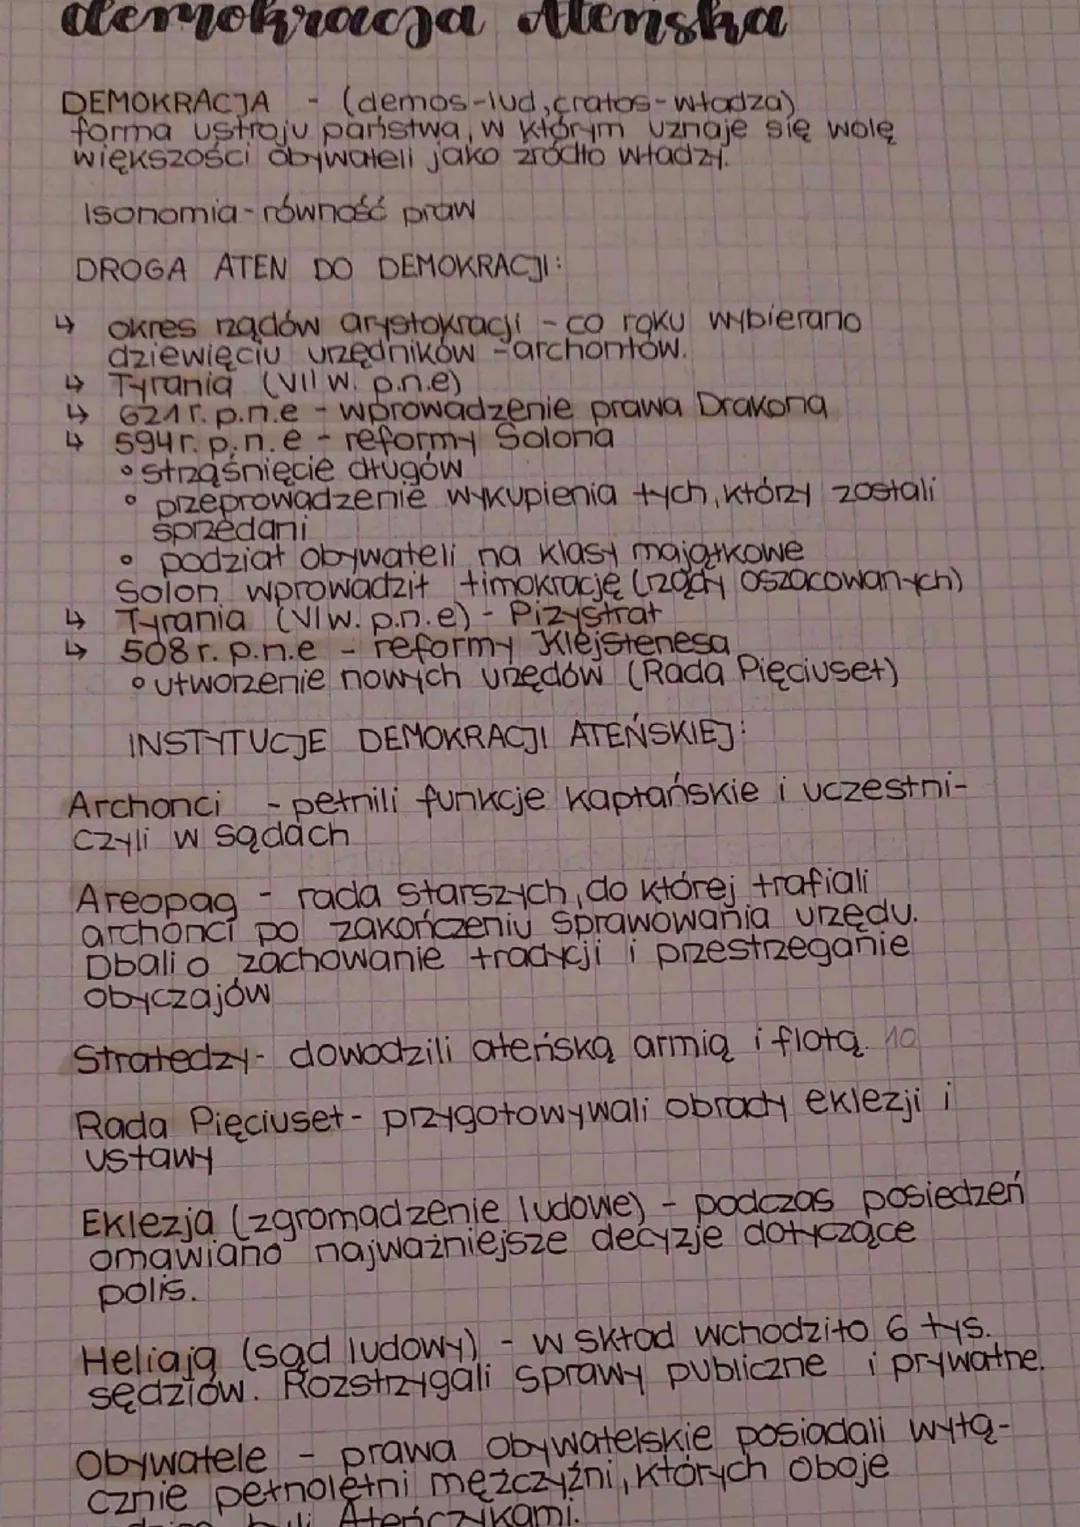 demokracja Ateńska
DEMOKRACJA - (demos-lud, cratos-władza)
forma ustroju państwa, w którym uznaje się wolę
większości obywateli jako źródło władzy.
Isonomia-równość praw
DROGA ATEN DO DEMOKRACJI:
↳ okres rządów arystokracji - co roku wybierano
dziewięciu urzędników -archontów.
↳ Tyrania (VII w. p.n.e)
↳ 621 r. p.n.e - wprowadzenie prawa Drakona
↳ 594 r. p.n.e - reformy Solona
• strząśnięcie długów
• przeprowadzenie wykupienia tych, którzy zostali
sprzedani
• podział obywateli na klasy majątkowe
Solon wprowadził timokrację (rządy oszacowanych)
↳ Tyrania (VI w. p.n.e) - Pizystrat
↳ 508 r. p.n.e - reformy Klejstenesa
• utworzenie nowych urzędów (Rada Pięciuset)
INSTYTUCJE DEMOKRACJI ATEŃSKIEJ:
Archonci - pełnili funkcje kapłańskie i uczestni-
czyli w sądach
Areopag - rada starszych, do której trafiali
archonci po zakończeniu sprawowania urzędu.
Dbali o zachowanie tradycji i przestrzeganie
obyczajów
Stratedzy- dowodzili ateńską armią i flotą. 10
Rada Pięciuset- przygotowywali obrady eklezji i
ustawy
Eklezja (zgromadzenie ludowe) - podczas posiedzeń
omawiano najważniejsze decyzje dotyczące
polis.
Heliaja (sąd ludowy) - w skład wchodziło 6 tys.
sędziów. Rozstrzygali sprawy publiczne i prywatne.
Obywatele - prawa obywatelskie posiadali wyłą-
cznie pełnoletni mężczyźni, których oboje
byli Ateńczykami.